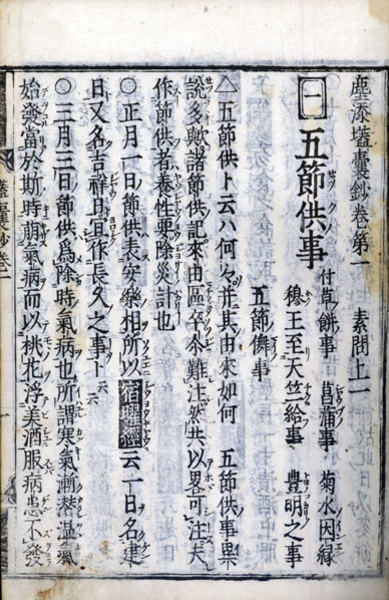 塵添壒囊鈔卷第一　素問上一
一　五節供事
付草餅事　菖蒲事　菊水因緣
穆王至天竺給事　豊明之事
五節儛事
△五節供ト云ハ何々ソ并其由來如何　五節供事異
說多歟諸節供記來由區卒尒難注然共以畧可注夫
作節供者養性要除災計也
〇正月一日節供表安樂相所以宿曜經云一日名建
日又名吉祥日宜作長久之事ト云云
〇三月三日節供爲除時氣病也所謂寒氣漸潜溫氣
始發當於斯時萠氣病而以桃花浮美酒服病患不發
塵囊鈔卷一